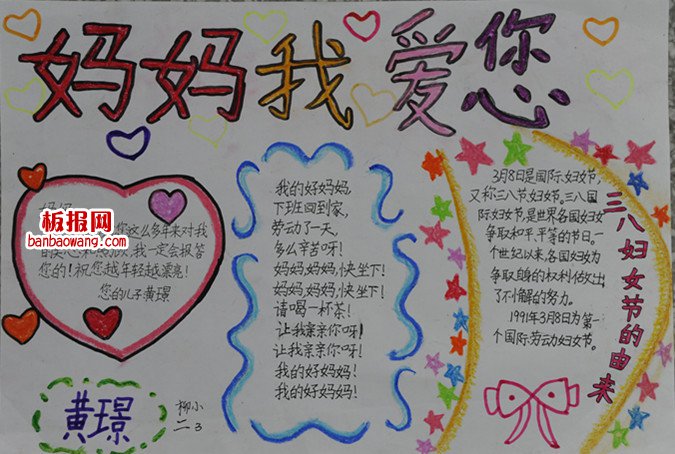 妈妈我爱您
妈妈
您这么多年来对我
我一定会报答
您的！祝您越年轻越漂亮！
您的儿子黄璟
板报网
banbaowang.com
我的好妈妈，
下班回到家，
劳动了一天，
多么辛苦呀！
妈妈，妈妈，快坐下！
妈妈，妈妈，快坐下！
请喝一杯茶！
让我亲亲你呀！
让我亲亲你呀！
我的好妈妈！
我的好妈妈！
3月8日是国际妇女节，
又称三八节，妇女节。三八国
际妇女节，是世界各国妇女
争取和平、平等的节日。一
个世纪以来，各国妇女为
争取自身的权利做出
了不懈的努力。
1991年3月8日为第一
个国际劳动妇女节。
三八妇女节的由来
黄璟
柳小
二3
板报网
banbaowang.com